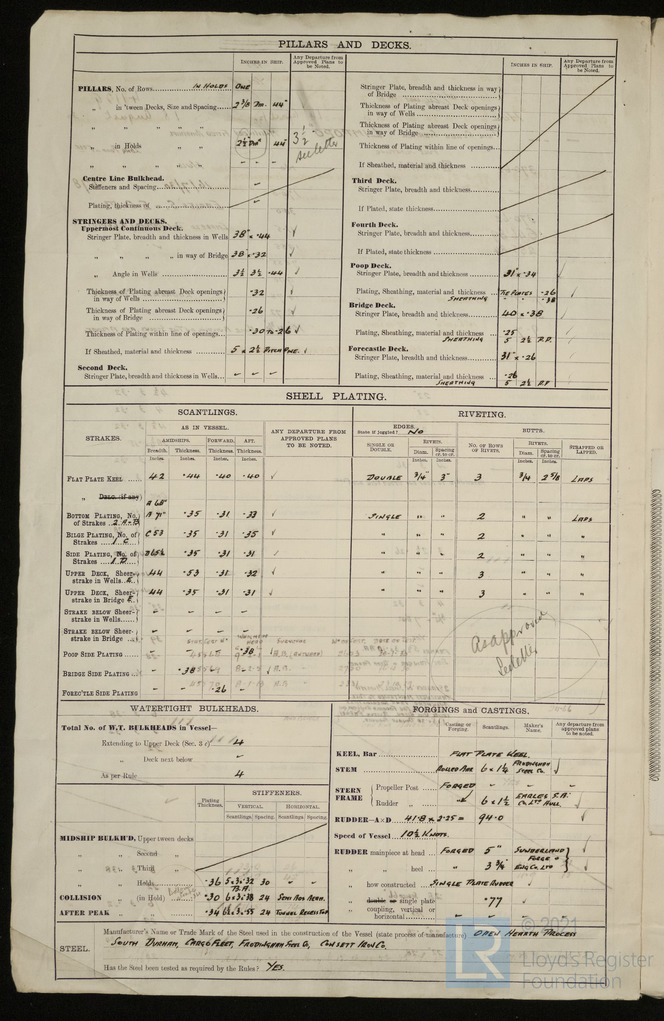 PILLARS AND DECKS.
INCHES IN SHIP.
Any Departure from Approved Plans to be Noted.
PILLARS, No. of Rows IN HOLDS ONE
„ in 'tween Decks, Size and Spacing 2 3/8 DIA. 44"
„ „ „ „
„ in Holds 44" 3 1/2 See letter
„ „ „ „ - - -
Centre Line Bulkhead.
Stiffeners and Spacing -
Plating, thickness of -
STRINGERS AND DECKS.
Uppermost Continuous Deck.
Stringer Plate, breadth and thickness in Wells 38" × .44 ✓
„ „ „ „ in way of Bridge 38" × .32 ✓
„ Angle in Wells 3½ 3½ .44 ✓
Thickness of Plating abreast Deck openings in way of Wells .32
Thickness of Plating abreast Deck openings in way of Bridge .26
Thickness of Plating within line of openings .30 TO .26 ✓
If Sheathed, material and thickness 5 × 2½ PITCH PINE. ✓
Second Deck.
Stringer Plate, breadth and thickness in Wells - - -
INCHES IN SHIP.
Any Departure from Approved Plans to be Noted.
Stringer Plate, breadth and thickness in way of Bridge
Thickness of Plating abreast Deck openings in way of Wells
Thickness of Plating abreast Deck openings in way of Bridge
Thickness of Plating within line of openings
If Sheathed, material and thickness
Third Deck.
Stringer Plate, breadth and thickness
If Plated, state thickness
Fourth Deck.
Stringer Plate, breadth and thickness
If Plated, state thickness
Poop Deck.
Stringer Plate, breadth and thickness 31" × .34 ✓
Plating, Sheathing, material and thickness TIE PLATES .26
SHEATHING .38
Bridge Deck.
Stringer Plate, breadth and thickness 40 × .38
Plating, Sheathing, material and thickness .25
SHEATHING 5 2½ P.P.
Forecastle Deck.
Stringer Plate, breadth and thickness 31" × .26
Plating, Sheathing, material and thickness .26
SHEATHING 5 2½ P.P
SHELL PLATING.
SCANTLINGS.
RIVETING.
STRAKES.
AS IN VESSEL.
AMIDSHIPS. FORWARD. AFT.
Breadth. Thickness. Thickness. Thickness.
Inches. Inches. Inches. Inches.
ANY DEPARTURE FROM APPROVED PLANS TO BE NOTED.
EDGES.
State if joggled? NO
SINGLE OR DOUBLE.
RIVETS.
Diam. Spacing cr. to cr.
Inches. Inches.
BUTTS.
NO. OF ROWS OF RIVETS.
RIVETS.
Diam. Spacing cr. to cr.
Inches. Inches.
STRAPPED OR LAPPED.
FLAT PLATE KEEL 42 .44 .40 .40 ✓ DOUBLE 3/4" 3" 3 3/4 2 5/8 LAPS
„ DBLG. (if any)
A 65"
BOTTOM PLATING, No. of Strakes 2 A & B B 71" .35 .31 .33 ✓ SINGLE „ „ 2 „ „ LAPS
BILGE PLATING, No. of Strakes 1 C C 53 .35 .31 .35 ✓ „ „ „ 2 „ „ „
SIDE PLATING, No. of Strakes 1 D .35 .31 .31 „ „ „ 2 „ „ „
UPPER DECK, Sheer-strake in Wells E 44 .53 .31 .32 ✓ „ „ „ 3 „ „ „
UPPER DECK, Sheer-strake in Bridge E 44 .35 .31 .31 „ „ „ 3 „ „ „
STRAKE BELOW Sheer-strake in Wells - - - -
STRAKE BELOW Sheer-strake in Bridge - - - -
As approved
See letter
POOP SIDE PLATING - - - .38
BRIDGE SIDE PLATING - .38
FORECASTLE SIDE PLATING - - .26
WATERTIGHT BULKHEADS.
Total No. of W.T. BULKHEADS in Vessel—
Extending to Upper Deck (Sec. 3 c) 4
„ Deck next below -
As per Rule 4
Plating Thickness
STIFFENERS.
VERTICAL. HORIZONTAL.
Scantlings. Spacing. Scantlings. Spacing.
MIDSHIP BULKH'D, Upper tween decks
„ „ Second „
„ „ Third „
„ „ Holds .36 5×3×.32 30 - -
B.A.
COLLISION „ (in Hold) .30 24 SEMI BOX BEAM.
AFTER PEAK „ „ .34 24 TUNNEL RECESS TOP
FORGINGS and CASTINGS.
Casting or Forging. Scantlings. Maker's Name. Any departure from approved plans to be noted.
KEEL, Bar FLAT PLATE KEEL.
STEM ROLLED BAR 6 × 1¼ FRODINGHAM STEEL Co. ✓
STERN FRAME
Propeller Post FORGED
Rudder „ 6 × 1½ EARLES S.B. Co. LTD HULL.
RUDDER—A × D 41.8 × 2.25 = 94.0
Speed of Vessel 10½ KNOTS.
RUDDER mainpiece at head FORGED 5" SUNDERLAND FORGE & ENG. Co. LTD ✓
„ „ heel „ 3 ¾"
„ how constructed SINGLE PLATE RUDDER
„ double or single plate .77
„ coupling, vertical or horizontal - -
STEEL.
Manufacturer's Name or Trade Mark of the Steel used in the construction of the Vessel (state process of manufacture) OPEN HEARTH PROCESS
SOUTH DURHAM, CARGO FLEET, FRODINGHAM STEEL Co, CONSETT IRON Co.
Has the Steel been tested as required by the Rules? YES.
© 2021
LR
Lloyd's Register
Foundation